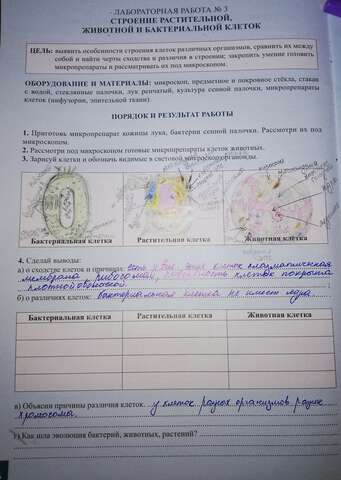 - ЛАБОРАТОРНАЯ РАБОТА № 3
СТРОЕНИЕ РАСТИТЕЛЬНОЙ,
ЖИВОТНОЙ И БАКТЕРИАЛЬНОЙ КЛЕТОК
ЦЕЛЬ: выявить особенности строения клеток различных организмов, сравнить их между
собой и найти черты сходства и различия в строении; закрепить умение готовить
микропрепараты и рассматривать их под микроскопом.
ОБОРУДОВАНИЕ И МАТЕРИАЛЫ: микроскоп, предметное и покровное стёкла, стакан
с водой, стеклянные палочки, лук репчатый, культура сенной палочки, микропрепараты
клеток (инфузории, эпительной ткани).
ПОРЯДОК И РЕЗУЛЬТАТ РАБОТЫ
1. Приготовь микропрепарат кожицы лука, бактерии сенной палочки. Рассмотри их под
микроскопом.
2. Рассмотри под микроскопом готовые микропрепараты клеток животных.
3. Зарисуй клетки и обозначь видимые в световой микроскоп органоиды.
Бактериальная клетка Растительная клетка Животная клетка
4. Сделай выводы:
а) о сходстве клеток и причинах есть у всех этих клеток плазматическая
мембрана, рибосомы, клеток покрыта
плотной оболочкой.
б) о различиях клеток: бактериальная клетка не имеет ядра.
Бактериальная клетка Растительная клетка Животная клетка
в) Объясни причины различия клеток. у клеток разных организмов разные
хромосомы.
г) Как шла эволюция бактерий, животных, растений?